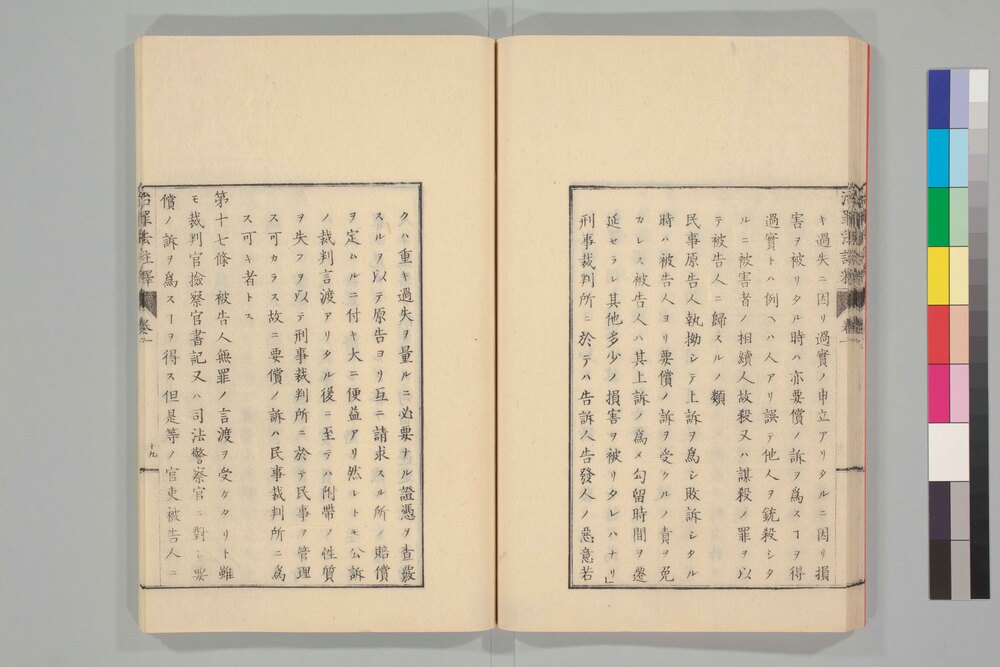 キ過失ニ因リ過實ノ申立アリタルニ因リ損
害ヲ被リタル時ハ亦要償ノ訴ヲ爲スヿヲ得
過實トハ例ヘハ人アリ誤テ他人ヲ銃殺シタ
ルニ被害者ノ相續人故殺又ハ謀殺ノ罪ヲ以
テ被告人ニ歸スルノ類
民事原告人執拗シテ上訴ヲ爲シ敗訴シタル
時ハ被告人ヨリ要償ノ訴ヲ受クルノ責ヲ免
カレス被告人ハ其上訴ノ爲メ勾留時間ヲ遷
延セラレ其他多少ノ損害ヲ被リタレハナリ」
刑事裁判所ニ於テハ告訴人告發人ノ惡意若
クハ重キ過失ヲ量ルニ必要ナル證憑ヲ査覈
スルヲ以テ原告ヨリ互ニ請求スル所ノ賠償
ヲ定ムルニ付キ大ニ便益アリ然レトモ公訴
ノ裁判言渡アリタル後ニ至テハ附帶ノ性質
ヲ失フヲ以テ刑事裁判所ニ於テ民事ヲ管理
ス可カラス故ニ要償ノ訴ハ民事裁判所ニ爲
ス可キ者トス
第十七條 被告人無罪ノ言渡ヲ受ケタリト雖
モ裁判官撿察官書記又ハ司法警察官ニ對シ要
償ノ訴ヲ爲スヿヲ得ス但是等ノ官吏被告人ニ
治罪法註釋 卷一
十九